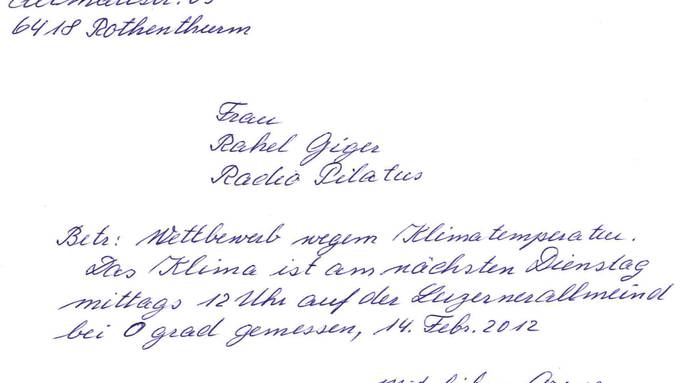 6418 Rothenthurm
Frau
Rahel Giger
Radio Pilatus
Betr: Wettbewerb wegem Klimatemperatur.
Das Klima ist am nächsten Dienstag
mittags 12 Uhr auf der Luzernerallmeind
bei 0 grad gemessen, 14. Febr. 2012